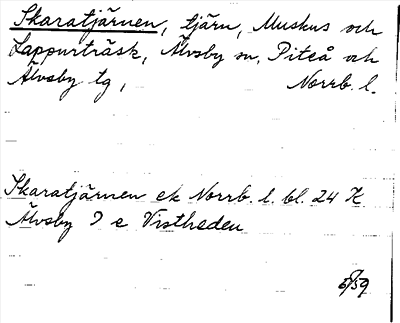 Skaratjärnen, tjärn, Muskus och
Lappurträsk, Älvsby sn, Piteå och
Älvsby tg, Norrb. l.
Skaratjärnen ek Norrb. l. bl. 24 K
Älvsby I e Vistheden
5/59